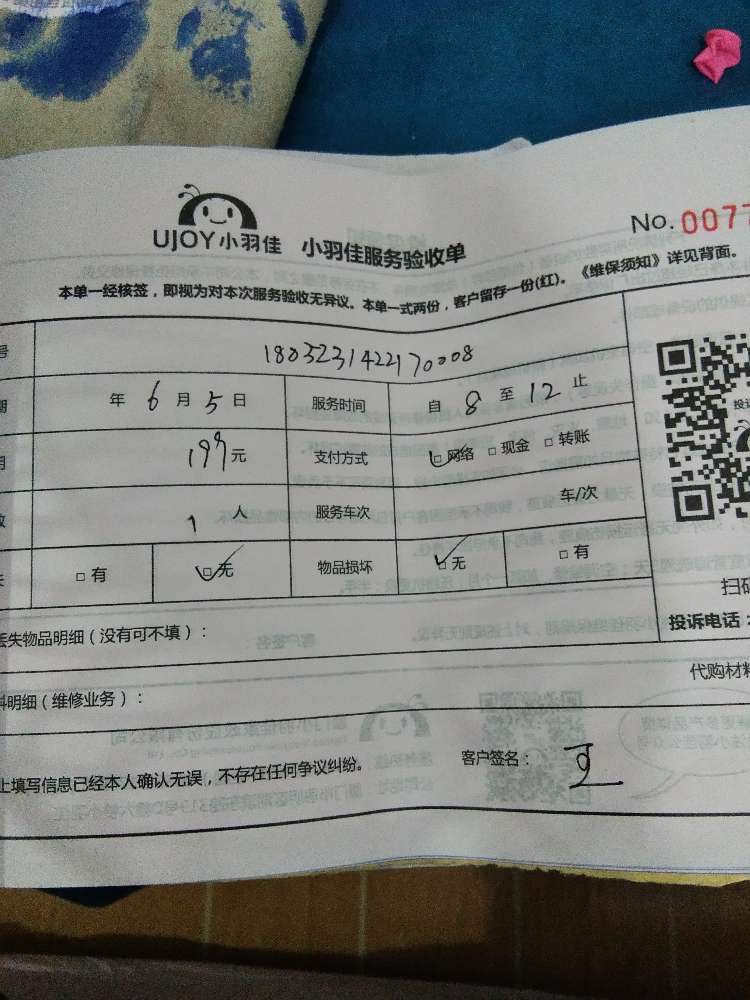 UJOY小羽佳 小羽佳服务验收单 No.0077
本单一经核签，即视为对本次服务验收无异议。本单一式两份，客户留存一份(红)。《维保须知》详见背面。
号 1803231422170008
期 年 6 月 5 日 服务时间 自 8 至 12 止
用 199元 支付方式 □网络 □现金 □转账
数 1 人 服务车次 车/次
失 □有 □无 物品损坏 □无 □有
扫码
丢失物品明细（没有可不填）： 投诉电话：
代购材料
料明细（维修业务）：
客户签名：
上填写信息已经本人确认无误，不存在任何争议纠纷。